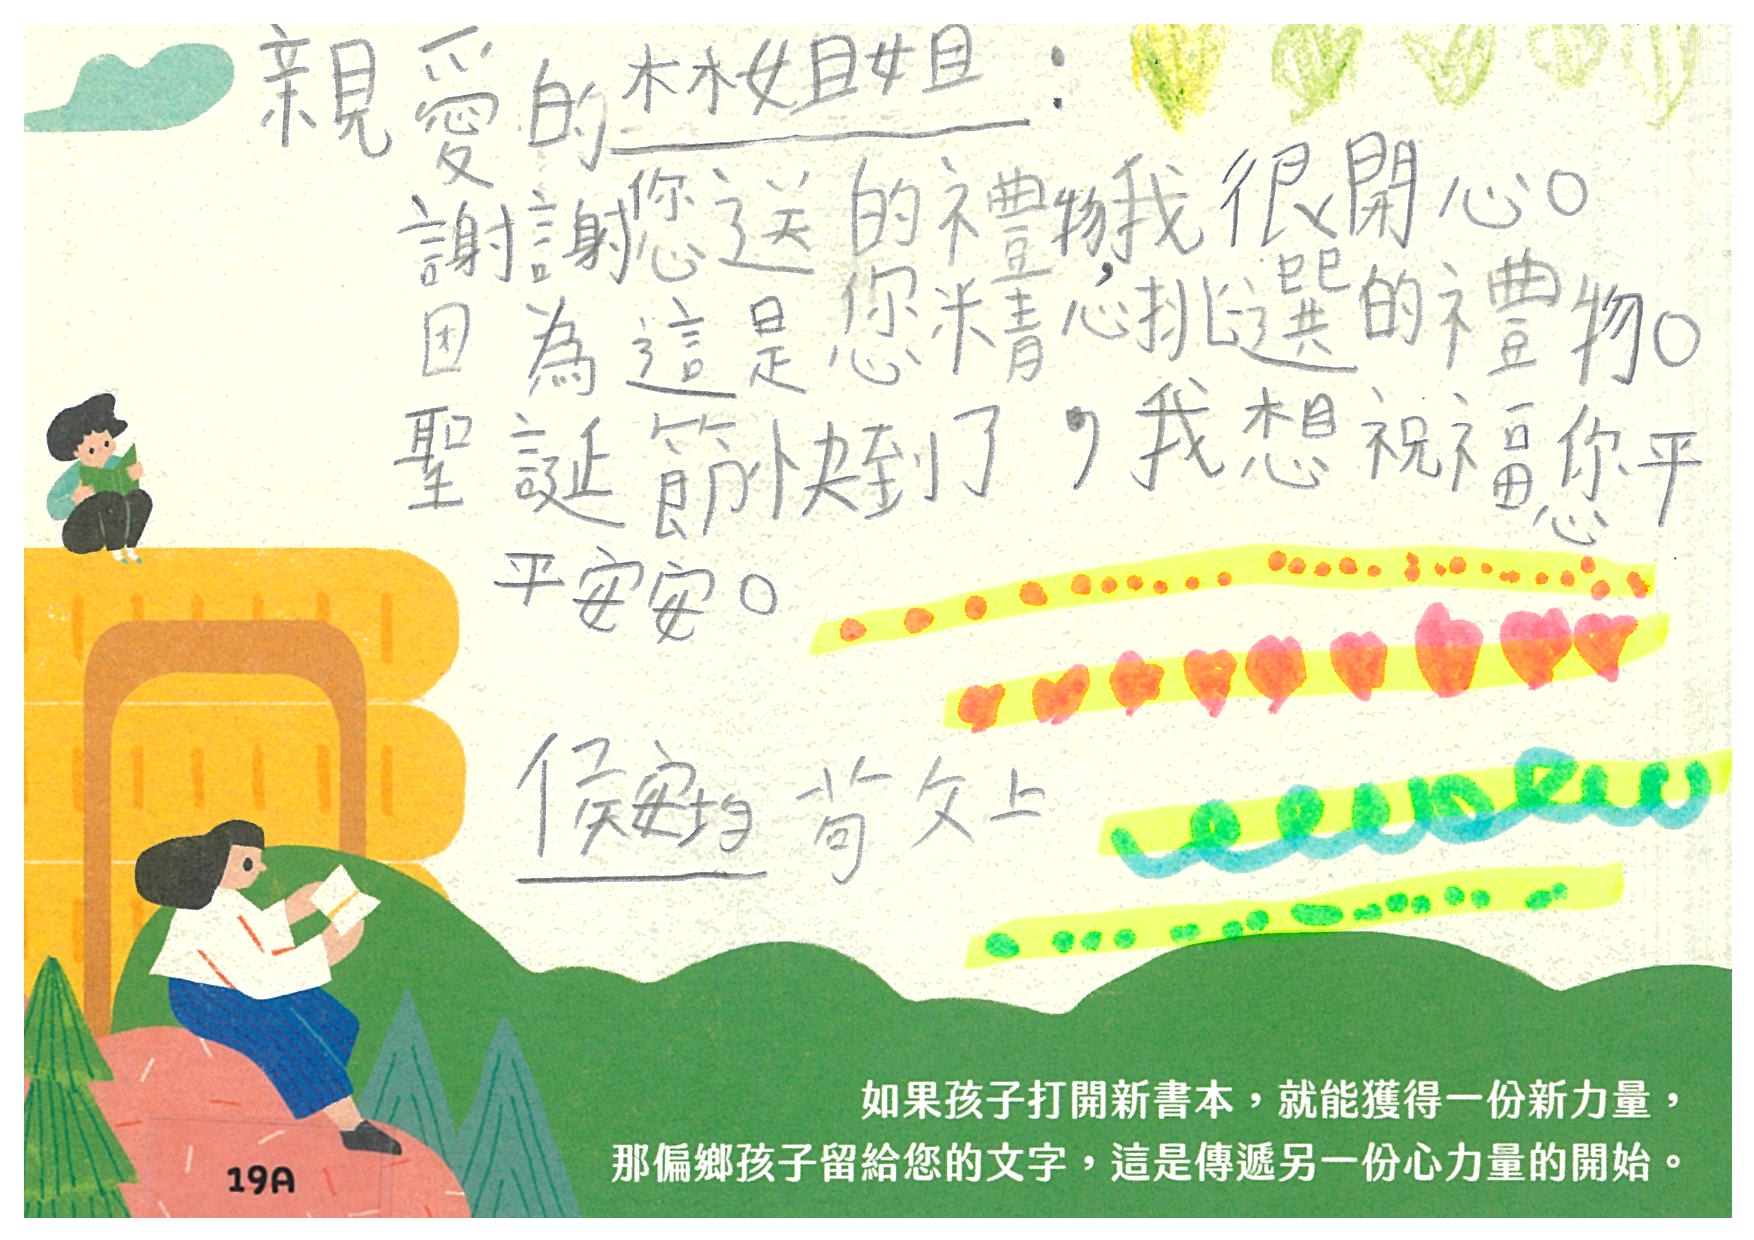 親愛的林姐姐：
謝謝您送的禮物，我很開心。
因為這是您精心挑選的禮物。
聖誕節快到了，我想祝福您平
平安安。
侯安均 苟文上
如果孩子打開新書本，就能獲得一份新力量，
那偏鄉孩子留給您的文字，這是傳遞另一份心力量的開始。
19A